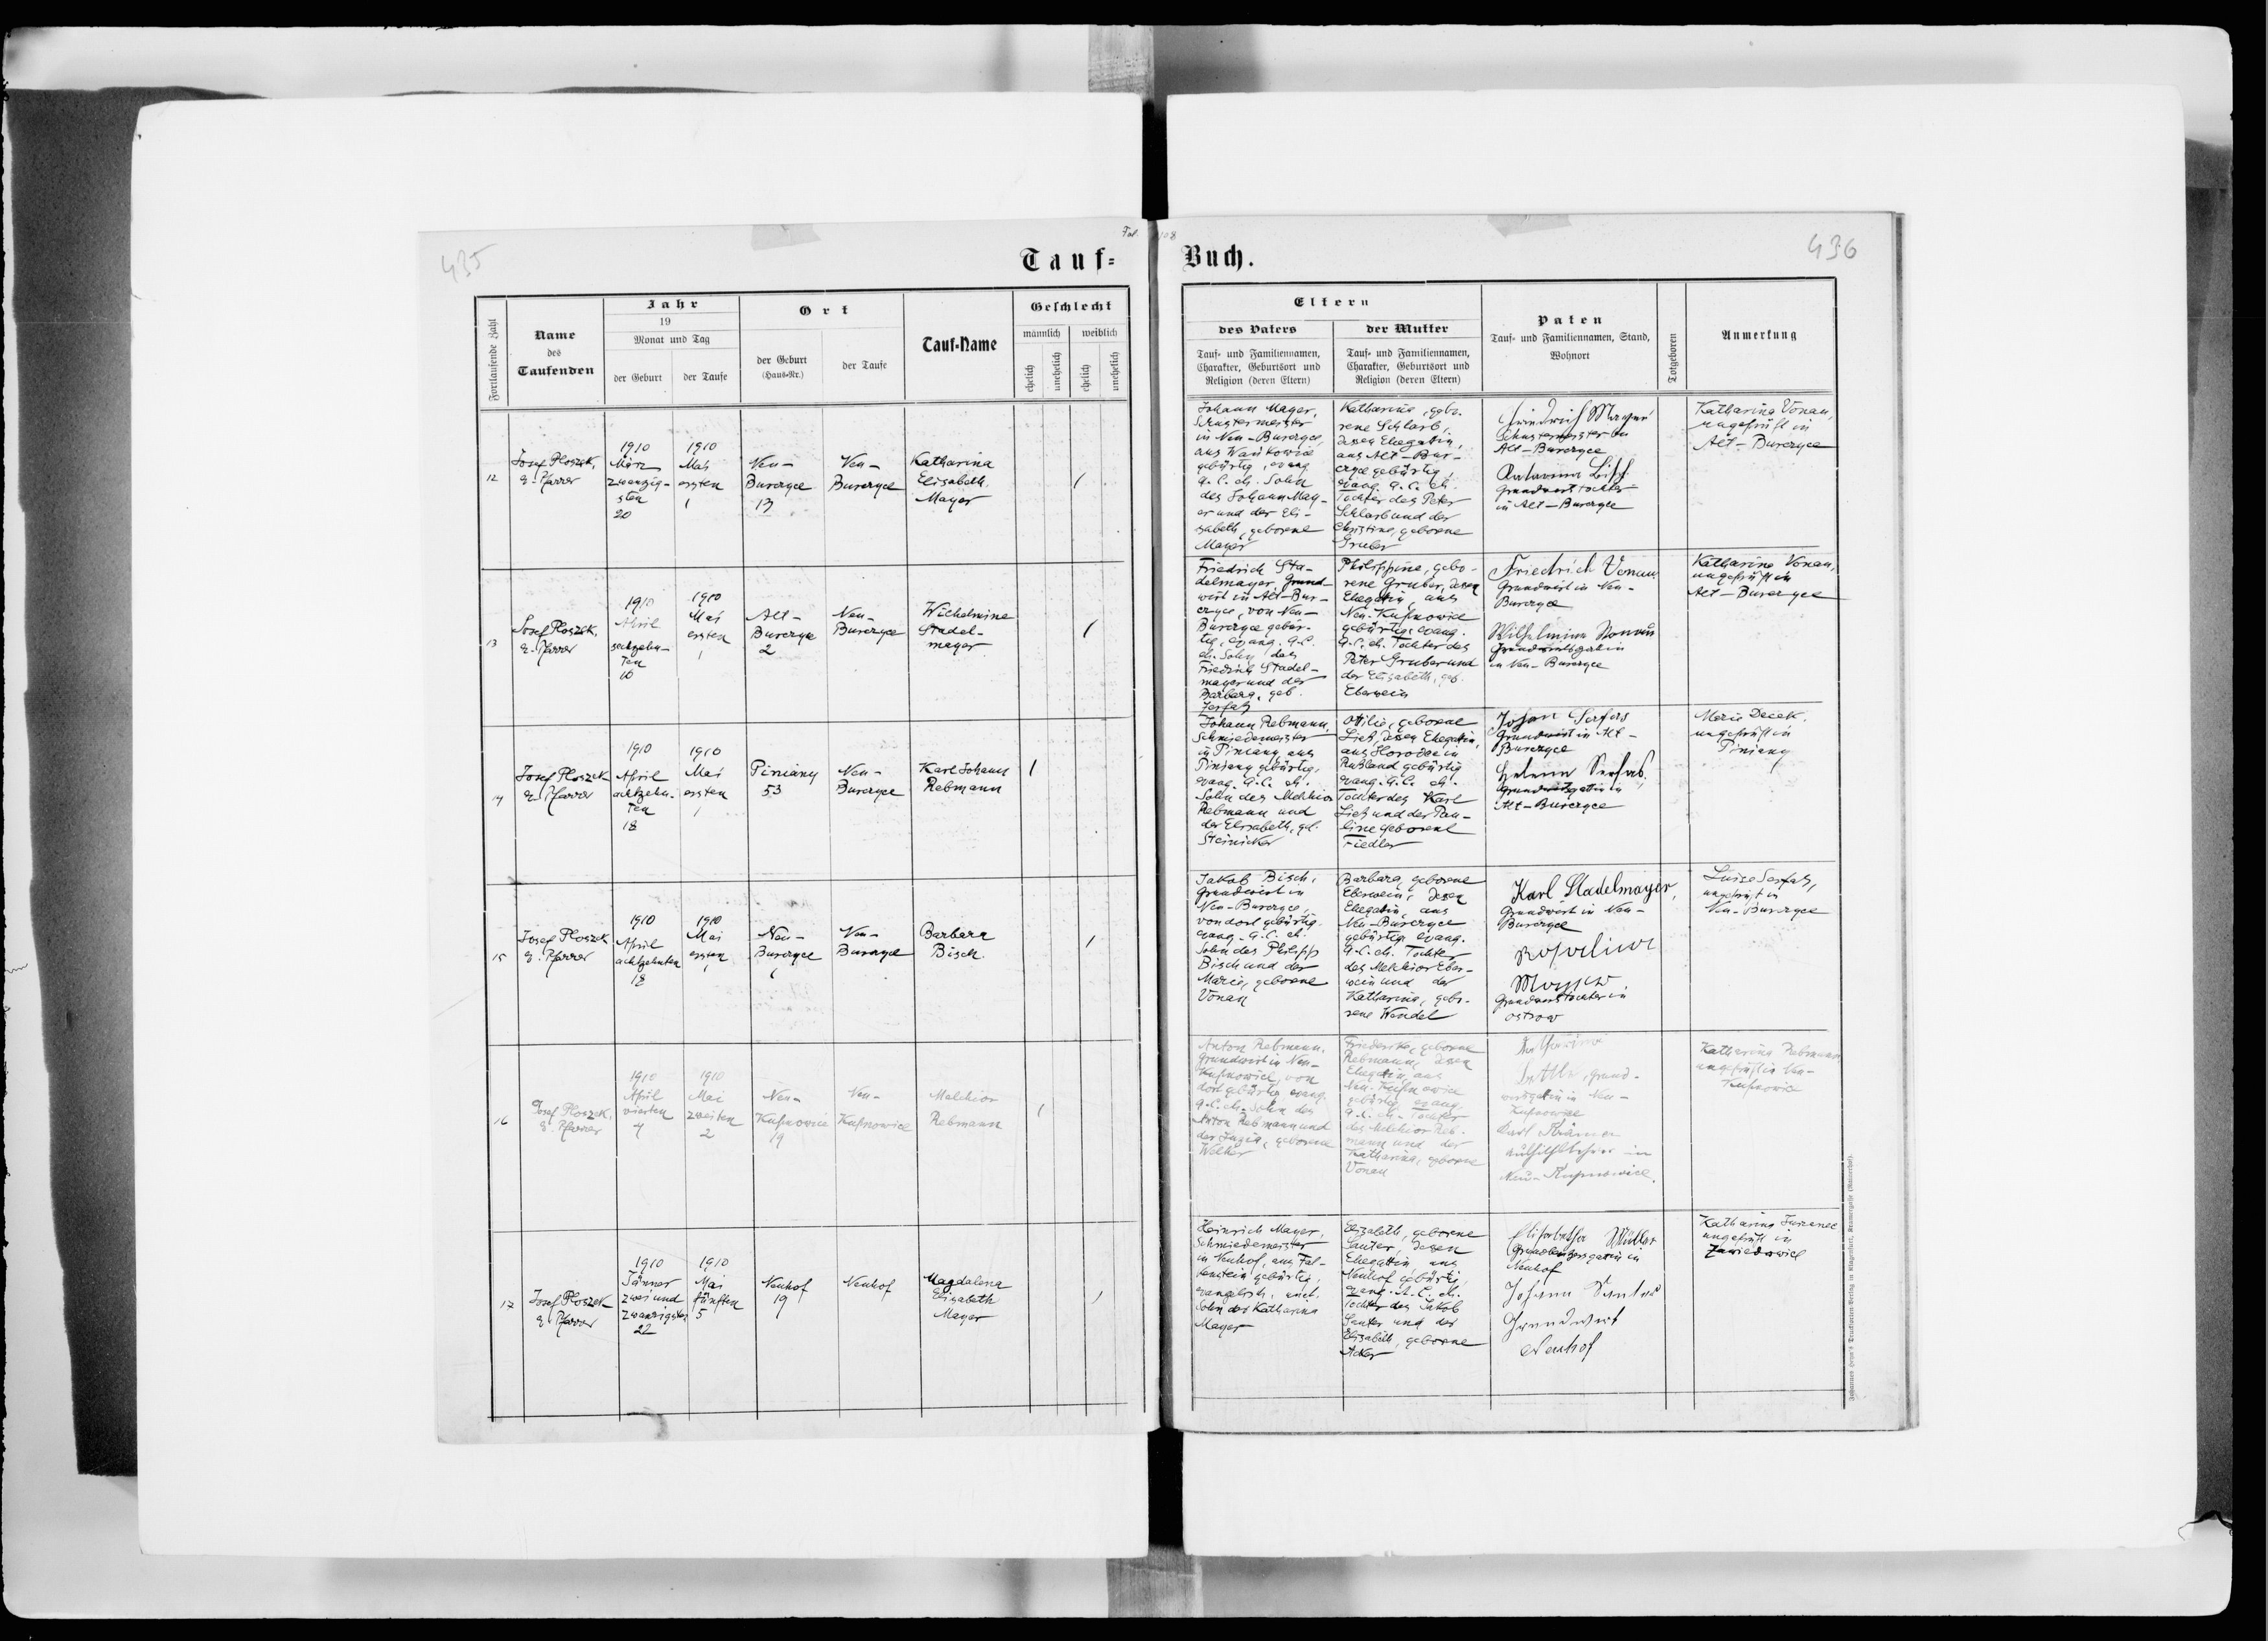 435
Fol. 108
436
Tauf=
Buch.
Fortlaufende Zahl
Name
des
Taufenden
Jahr
19
Monat und Tag
der Geburt
der Taufe
Ort
der Geburt
(Haus-Nr.)
der Taufe
Tauf-Name
Geschlecht
männlich
weiblich
ehelich
unehelich
ehelich
unehelich
Eltern
des Vaters
Tauf- und Familiennamen,
Charakter, Geburtsort und
Religion (deren Eltern)
der Mutter
Tauf- und Familiennamen,
Charakter, Geburtsort und
Religion (deren Eltern)
Paten
Tauf- und Familiennamen, Stand,
Wohnort
Totgeboren
Anmerkung
12
Josef Ploszek,
e. Pfarrer
1910
März
zwanzig-
sten
20
1910
Mai
ersten
1
Neu-
Burczyce
13
Neu-
Burczyce
Katharina
Elisabeth
Mayer
1
Johann Mayer,
Schustermeister
in Neu-Burczyce,
aus Wańkowice
gebürtig, evang.
A. C. eh. Sohn
des Johann May-
er und der Eli-
sabeth, geborene
Mayer
Katharina, gebo-
rene Schlarb,
dessen Ehegattin,
aus Alt-Bur-
czyce gebürtig,
evang. A. C. eh.
Tochter des Peter
Schlarb und der
Christine, geborene
Gruber
Friedrich Mayer
Schustermeister in
Alt-Burczyce
Katarina Bisch
Grundwirttochter
in Alt-Burczyce
Katharina Vonau,
ungeprüft in
Alt-Burczyce
13
Josef Ploszek,
e. Pfarrer
1910
April
sechzehn-
ten
16
1910
Mai
ersten
1
Alt-
Burczyce
2
Neu-
Burczyce
Wilhelmine
Stadel-
mayer
1
Friedrich Sta-
delmayer, Grund-
wirt in Alt-Bur-
czyce, von Neu-
Burczyce gebür-
tig, evang. A. C.
eh. Sohn des
Friedrich Stadel-
mayer und der
Barbara, geb.
Serfas
Philippine, gebo-
rene Gruber, dessen
Ehegattin, aus
Neu-Kupnowice
gebürtig, evang.
A. C. eh. Tochter des
Peter Gruber und
der Elisabeth, geb.
Eberwein
Friedrich Vonau
Grundwirt in Neu-
Burczyce
Wilhelmine Vonau
Grundwirtsgattin
in Neu-Burczyce
Katharina Vonau,
ungeprüft in
Alt-Burczyce
14
Josef Ploszek
e. Pfarrer
1910
April
achtzehn-
ten
18
1910
Mai
ersten
1
Piniany
53
Neu-
Burczyce
Karl Johann
Rebmann
1
Johann Rebmann,
Schmiedemeister
in Piniany, aus
Piniany gebürtig,
evang. A. C. eh.
Sohn des Melchior
Rebmann und
der Elisabeth, geb.
Steinicker
Otilie, geborene
Lietz, dessen Ehegattin,
aus
Rußland gebürtig
evang. A. C. eh.
Tochter des Karl
Lietz und der Pau-
line geborene
Fiedler
Johan Serfas
Grundwirt in Alt-
Burczyce
Helena Serfas,
Grundwirtsgattin in
Alt-Burczyce
Marie Decek,
ungeprüft in
Piniany
15
Josef Ploszek
e. Pfarrer
1910
April
achtzehnten
18
1910
Mai
ersten
1
Neu-
Burczyce
6
Neu-
Burczyce
Barbara
Bisch.
1
Jakob Bisch,
Grundwirt in
Neu-Burczyce,
von dort gebürtig
evang. A. C. eh.
Sohn des Philipp
Bisch und der
Marie, geborene
Vonau
Barbara, geborene
Eberwein, dessen
Ehegattin, aus
Neu-Burczyce
gebürtig, evang.
A. C. eh. Tochter
des Melchior Eber-
wein und der
Katharina, gebo-
rene Wendel
Karl Stadelmayer,
Grundwirt in Neu-
Burczyce
Rosalina
Mayer
Grundwirtstochter in
Ostrow
Luise Serfas,
ungeprüft in
Neu-Burczyce
16
Josef Ploszek,
e. Pfarrer
1910
April
vierten
4
1910
Mai
zweiten
2
Neu-
Kupnowice
19
Neu-
Kupnowice
Melchior
Rebmann
1
Anton Rebmann,
Grundwirt in Neu-
Kupnowice, von
dort gebürtig, evang.
A. C. eh. Sohn des
Anton Rebmann und
der, geborene
Welker
Friederike, geborene
Rebmann, dessen
Ehegattin, aus
Neu-Kupnowice
gebürtig, evang.
A. C. eh. Tochter
des Melchior Reb-
mann und der
Katharina, geborene
Vonau
Katharina
Grund-
wirtsgattin in Neu-
Kupnowice
Karl Krämer
Aushilfslehrer in
Neu-Kupnowice.
Katharina Rebmann
ungeprüft in Neu-
Kupnowice
17
Josef Ploszek
e. Pfarrer
1910
Jänner
zwei und
zwanzigsten
22
1910
Mai
fünften
5
Neuhof
19
Neuhof
Magdalena
Elisabeth
Mayer
1
Heinrich Mayer,
Schmiedemeister
in Neuhof, aus Fal-
kenstein gebürtig,
evangelisch, uneh.
Sohn der Katharina
Mayer
Elisabeth, geborene
Sauter, dessen
Ehegattin, aus
Neuhof gebürtig,
evang. A. C. eh.
Tochter des Jakob
Sauter und der
Elisabeth, geborene
Acker
Elisabetha Müller
Grundbesitzersgattin in
Neuhof
Johann Sauter
Grundwirt
Neuhof
Katharina
ungeprüft in
Zawidowice
Johannes Heyn's Drucksorten-Verlag in Klagenfurt, Kramergasse